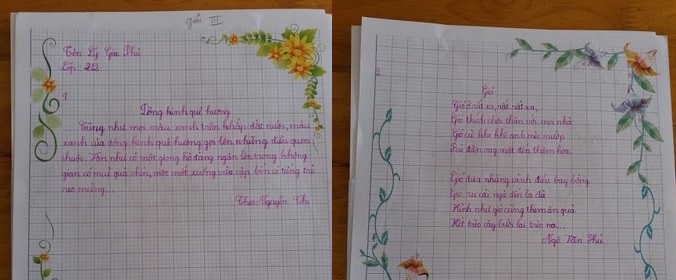 giải III
Tên: Lý Gia Phú
Lớp: 2/2
1
Dòng kinh quê hương
Cũng như mọi màu xanh trên khắp đất nước, màu
xanh của dòng kinh quê hương gợi lên những điều quen
thuộc. Vẫn như có một giọng hò đang ngân lên trong không
gian có mùi quả chín, một mái xuồng vừa cập bến có tiếng trẻ
reo mừng...
Theo Nguyễn Thi
2
Gió
Gió ở rất xa, rất rất xa,
Gió thích chơi thân với mọi nhà
Gió cù khe khẽ anh mèo mướp
Rủ đàn ong mật đến thăm hoa.
Gió đưa những cánh diều bay bổng
Gió ru cái ngủ đến la đà
Hình như gió cũng thèm ăn quả
Hết trèo cây bưởi lại trèo na...
Ngô Văn Phú